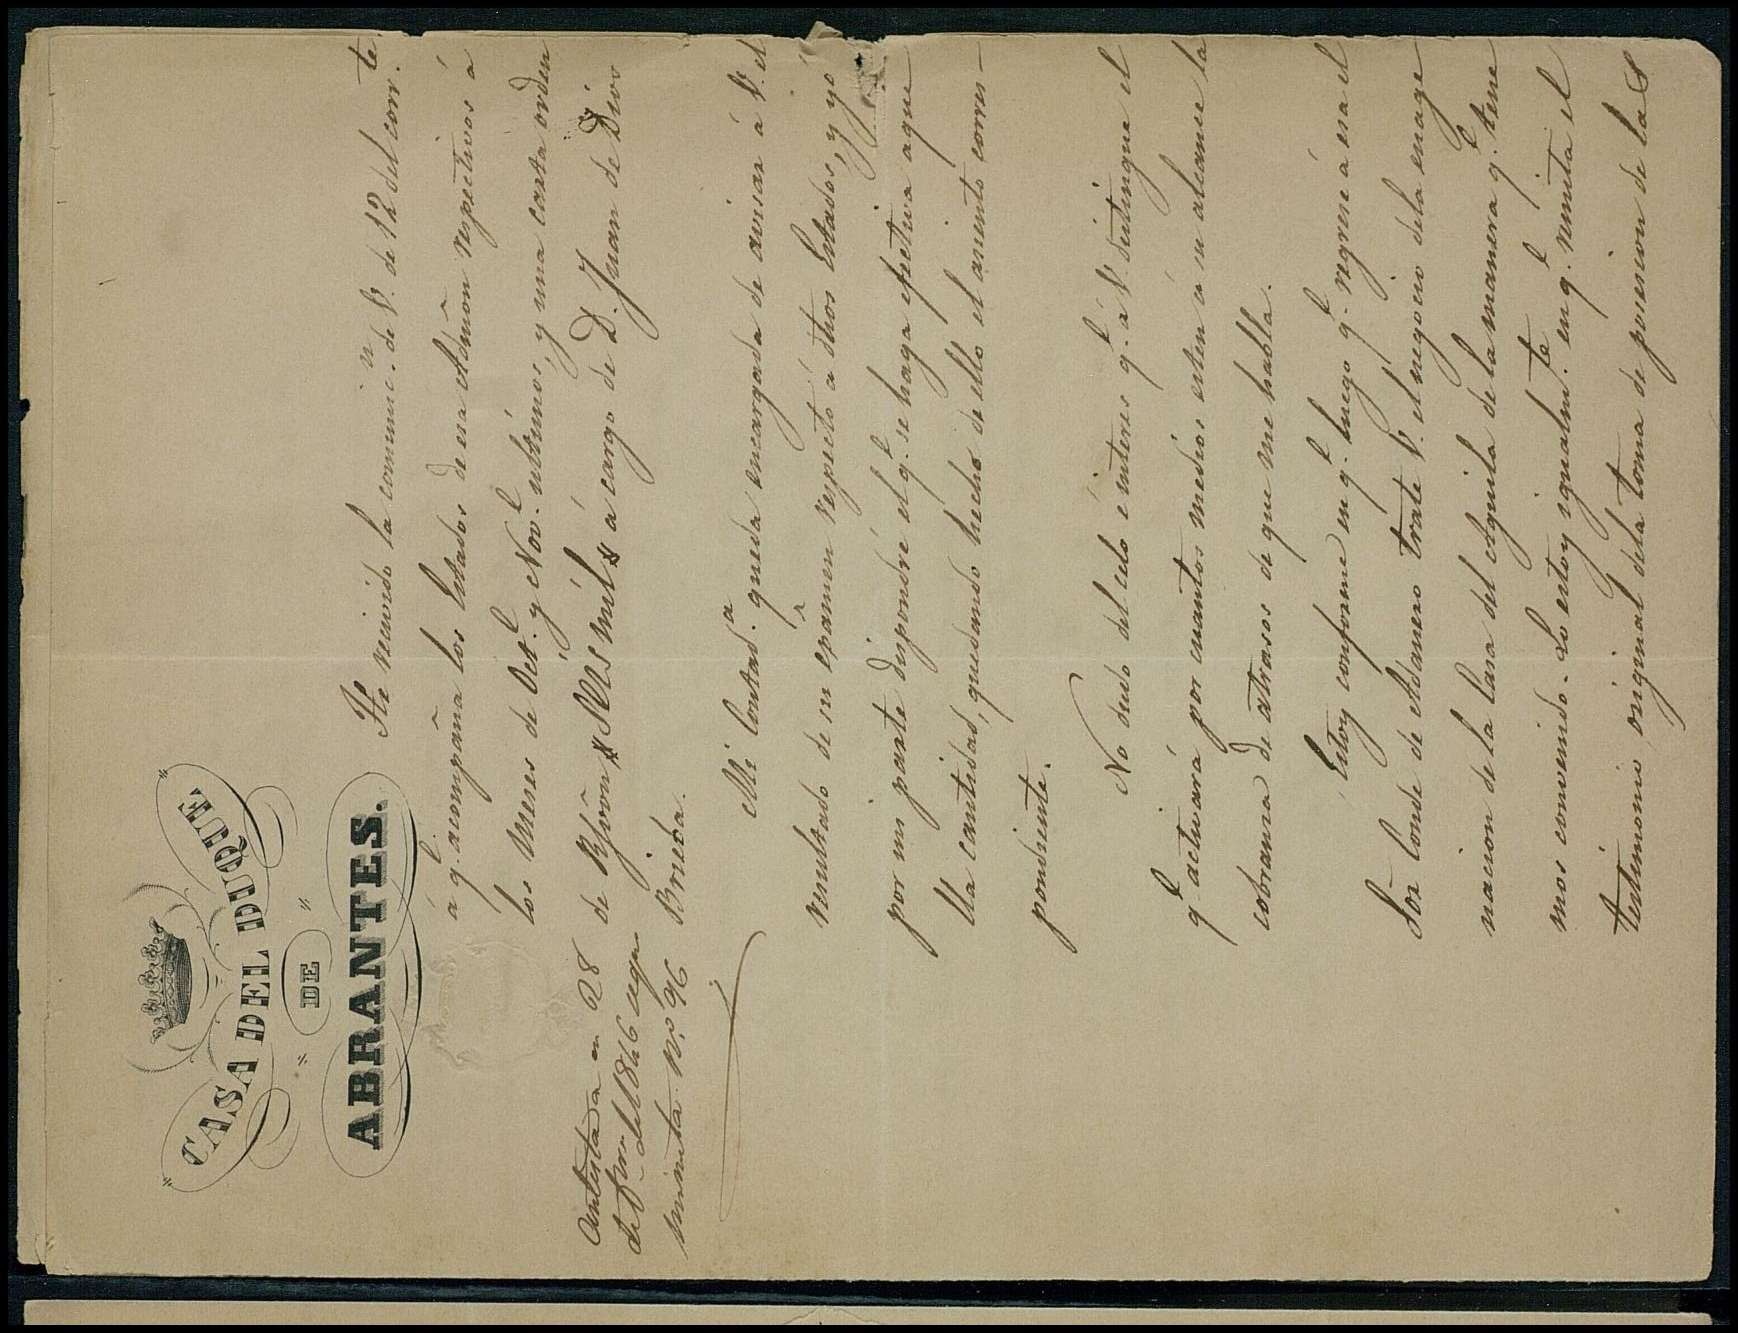 CASA DEL DUQUE
DE
ABRANTES.
He recivido la comunic.n de V. de 12 del corr.te
á q.e acompaña los Estados de esa Admõn respectivos á
los meses de Oct.e y Nov.e ultimos, y una carta orden
de Rs. von seis mil á cargo de D. Juan de Dios
Brieba.
Contestada en 28
de de 1846 segun
minuta n.º 96
Mi Contad.a queda encargada de avisar á V. el
resultado de su examen respecto á dhos Estados, y yo
por mi parte dispondré el q.e se haga efectiva aque
lla cantidad, quedando hecho de ello el asiento corres-
pondiente.
No dudo del celo é interes q.e á V. distingue el
q.e activará por cuantos medios esten á su alcance la
cobranza de atrasos de que me habla.
Estoy conforme en q.e luego q.e regrese á esa el
Sōr Conde de Adanero trate V. el negocio dela enage
nacion de la Casa del Aguila de la manera q.e tene
mos convenido. Lo estoy igualm.te en q.e remita el
testimonio original dela toma de posesion de las